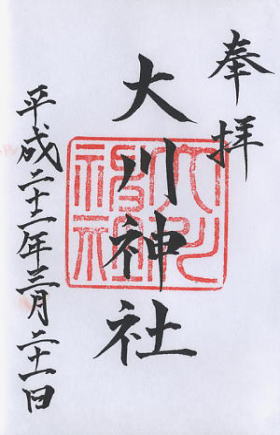 奉拝
大川神社
平成二十二年三月二十一日
大川神社